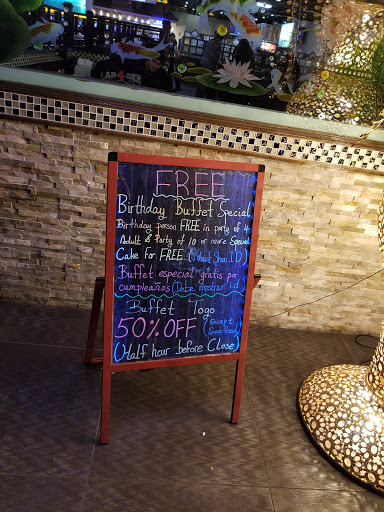 FREE
Birthday Buffet Special
Birthday person FREE in party of 4
Adult & Party of 10 or more Special
Cake for FREE (*Must Show ID)
Buffet especial gratis por
cumpleaños (Debe mostrar id)
Buffet Togo
50% OFF (Except
Seafood)
(Half hour before Close)